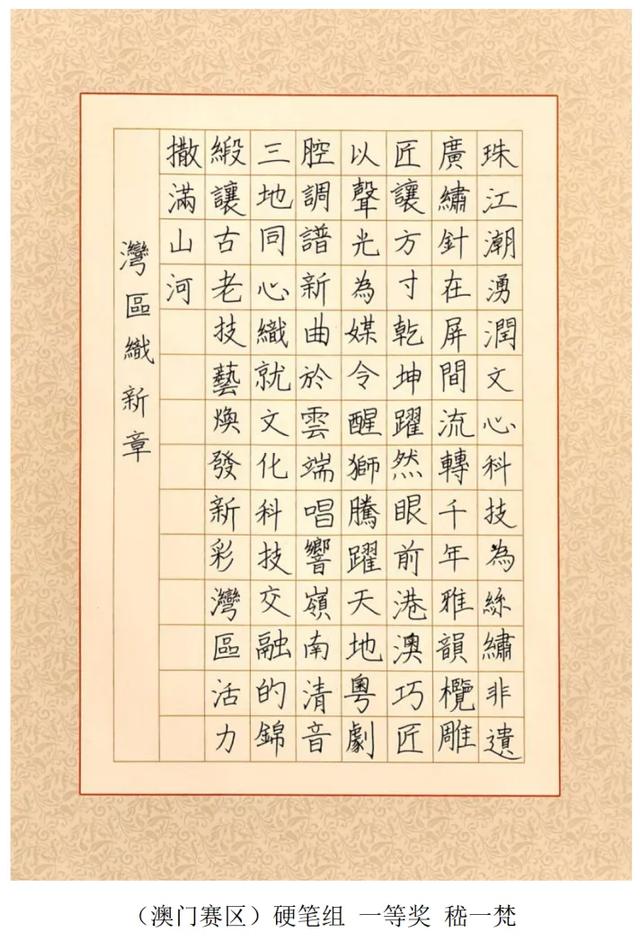 珠江潮湧潤文心科技為絲繡非遺
廣繡針在屏間流轉千年雅韻欖雕
匠讓方寸乾坤躍然眼前港澳巧匠
以聲光為媒令醒獅騰躍天地粵劇
腔調譜新曲於雲端唱響嶺南清音
三地同心織就文化科技交融的錦
緞讓古老技藝煥發新彩灣區活力
撒滿山河
灣區織新章
（澳门赛区）硬笔组 一等奖 嵇一梵